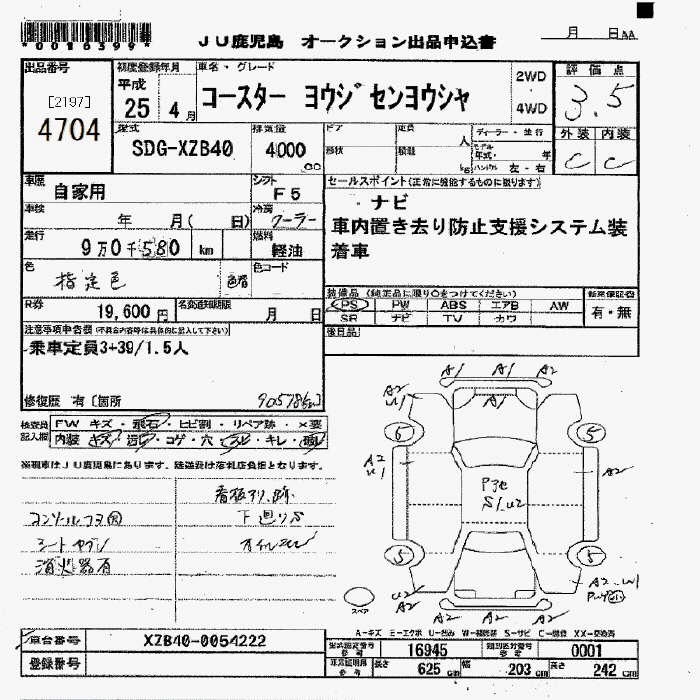 *0016399*
JU鹿児島 オークション出品申込書
月 日AA
出品番号 初度登録年月 車名・グレード 2WD 4WD 評価点
[2197]
4704
平成 25年 4月
コースター ヨウジセンヨウシャ
3.5
型式 排気量 ドア 定員 人 ディーラー・並行 外装 内装
SDG-XZB40 4000 cc
形状 積載 kg モデル年式 年 ハンドル 左・右
C C
車歴 自家用 シフト F5
セールスポイント(正常に機能するものに限ります)
車検 年 月( 日) 冷房 クーラー
ナビ
車内置き去り防止支援システム装
着車
走行 9万0千580 km 燃料 軽油
色 指定色 色替 色コード
装備品(純正品に限り○をつけてください) 新車保証書
PS PW ABS エアB AW 有・無
SR ナビ TV カワ
R券 19,600円 名変通知期限 月 日
後日品
注意事項申告欄(不具合内容等は具体的に記入して下さい)
乗車定員3+39/1.5人
修復歴 有〔箇所
90578km
検査員記入欄 FW キズ・飛石・ヒビ割・リペア跡・×要
内装 キズ・汚れ・コゲ・穴・スレ・キレ・
※現車はJU鹿児島にあります。陸送費は落札店負担となります。
看板アリ、跡
下廻りサビ
消火器有
A1 A1 A1
A2
U1
A1
6
5
A2
U1
A2
S1.U2
5
5
A2
U2
A2
A2 A2 A2
スペア
A-キズ E-エクボ U-凹み W-補修跡 S-サビ C-腐食 XX-交換済
車台番号 XZB40-0054222
型式指定番号 参考 16945 類別区分番号 参考 0001
登録番号
車庫証明用 参考 長さ 625cm 幅 203cm 高さ 242cm